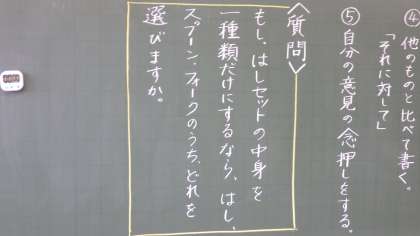 ④他のものと比べて書く。
「それに対して」
⑤自分の意見の念押しをする。
〈質問〉
もし、はしセットの中身を
一種類だけにするなら、はし、
スプーン、フォークのうち、どれを
選びますか。